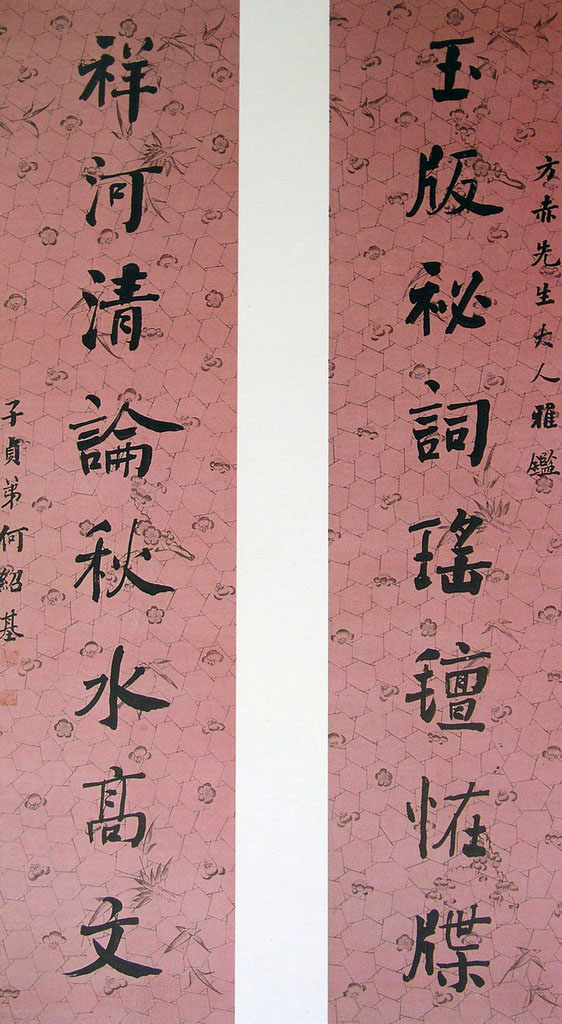 玉版祕詞瑤壇恠牒
方赤先生大人雅鑑
祥河清論秋水髙文
子貞弟何紹基